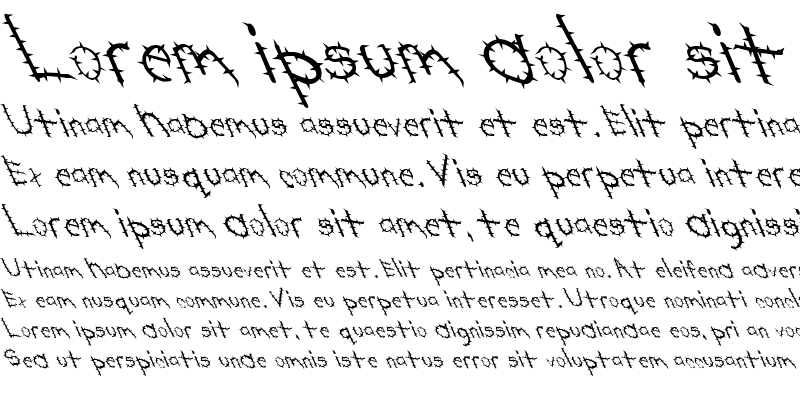 Lorem ipsum dolor sit
Utinam habemus assueverit et est. Elit pertina
Ex eam nusquam commune. Vis eu perpetua intere
Lorem ipsum dolor sit amet, te quaestio digniss
Utinam habemus assueverit et est. Elit pertinacia mea no. At eleifend advers
Ex eam nusquam commune. Vis eu perpetua interesset. Utroque nominati concl
Lorem ipsum dolor sit amet, te quaestio dignissim repudiandae eos, pri an voc
Sed ut perspiciatis unde omnis iste natus error sit voluptatem accusantium